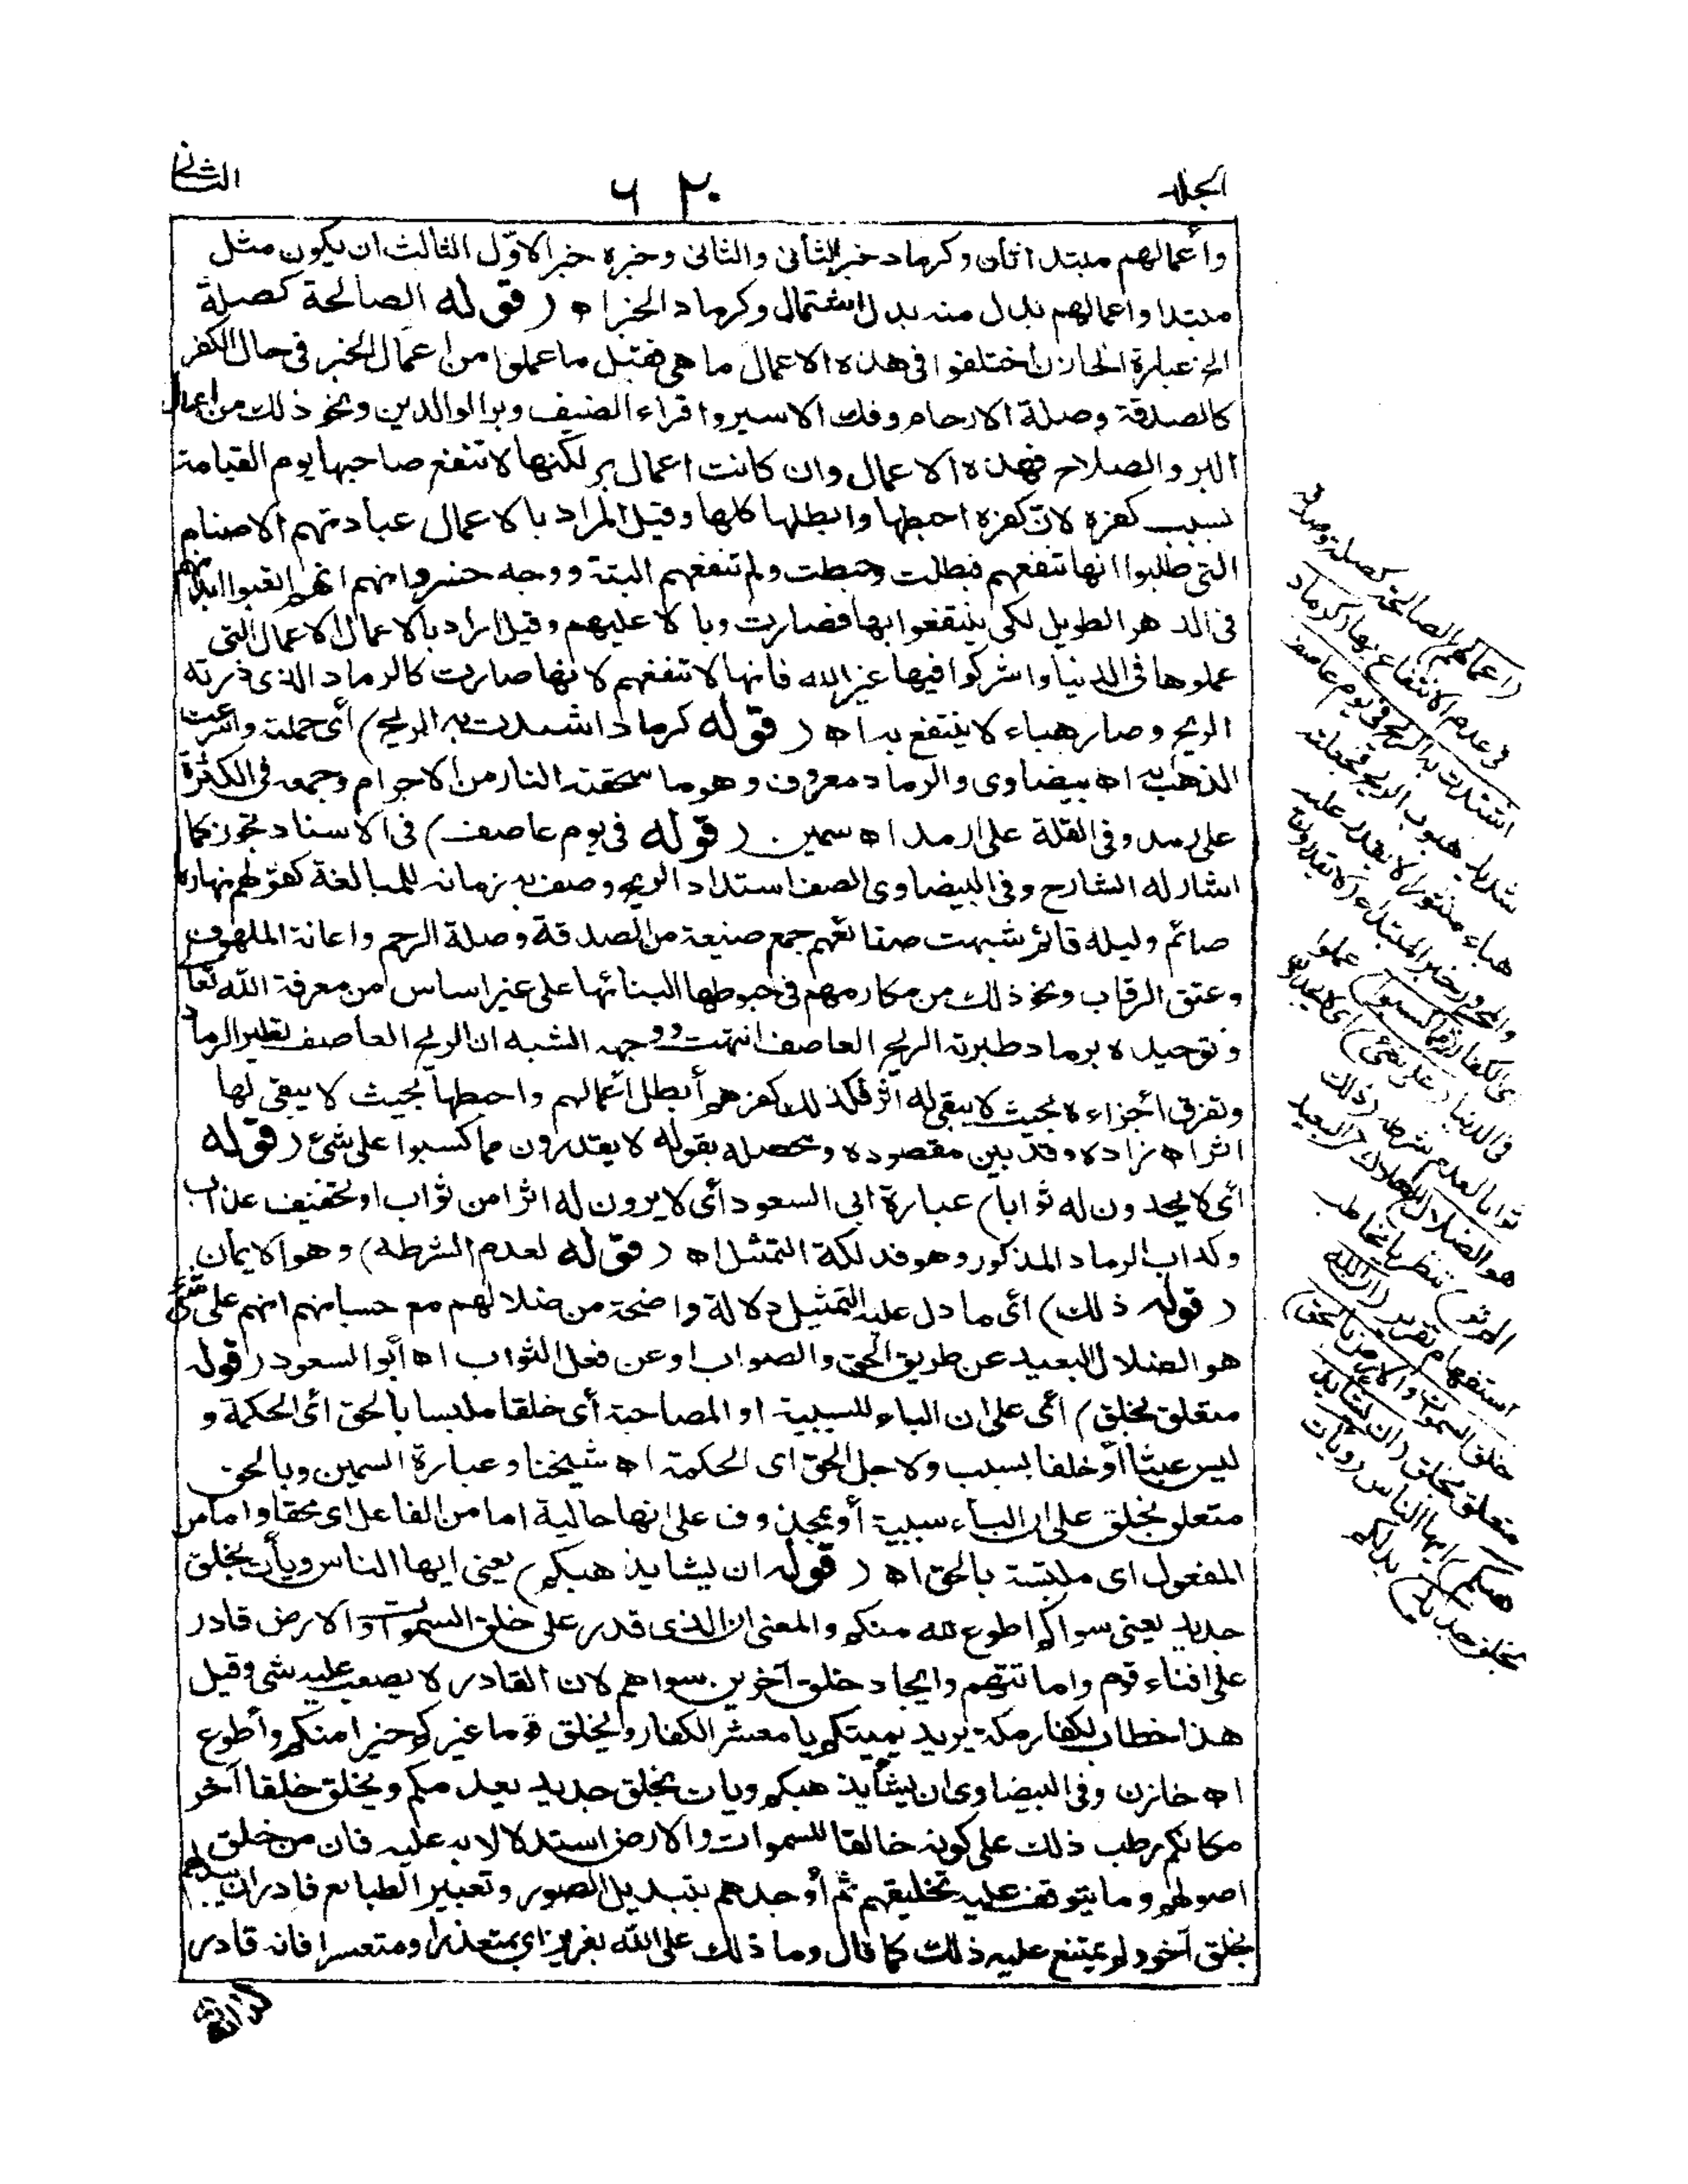 الجلد
٦ ٢٠
الثاني
وأعمالهم مبتدا ثان وكرماد خبر للثاني والثاني وخبره خبر الاوّل الثالث ان يكون مثل
مبتدا واعمالهم بدل منه بدل اشتمال وكرماد الخبر اه (قوله الصالحة كصلة
الخ عبارة الخازن اختلفوا في هذه الاعمال ما هي فقيل ما عملوا من اعمال الخير في حال الكفر
كالصدقة وصلة الارحام وفك الاسير واقراء الضيف وبر الوالدين ونحو ذلك من اعمال
البر والصلاح فهذه الاعمال وان كانت اعمال بر لكنها لا تنفع صاحبها يوم القيامة
بسبب كفره لانّ كفره احبطها وابطلها كلها وقيل المراد بالاعمال عبادتهم الاصنام
التي طلبوا انها تنفعهم فبطلت وحبطت ولم تنفعهم البتة ووجه خسرانهم انهم اتعبوا ابدانهم
في الدهر الطويل لكي ينتفعوا بها فصارت وبالا عليهم وقيل اراد بالاعمال الاعمال التي
عملوها في الدنيا واشركوا فيها غير الله فانها لا تنفعهم لانها صارت كالرماد الذي ذرته
الريح وصار هباء لا ينتفع به اه (قوله كرماد اشتدت به الريح) أي حملته واسرعت
الذهاب به اه بيضاوى والرماد معروف وهو ما سحقته النار من الاجرام وجمعه في الكثرة
على رمد وفي القلة على ارمد اه سمين. (قوله في يوم عاصف) في الاسناد تجوز كما
اشار له الشارح وفي البيضاوى العصف اشتداد الريح وصف به زمانه للمبالغة كقولهم نهاره
صائم وليله قائم شبهت صنائعهم جمع صنيعة من الصدقة وصلة الرحم واعانة الملهوف
وعتق الرقاب ونحو ذلك من مكارمهم في حبوطها لبنائها على غير اساس من معرفة الله تعا
وتوحيده برماد طيرته الريح العاصف انتهت ووجه الشبه ان الريح العاصف تطير الرماد
وتفرق أجزاءه بحيث لا يبقى له أثر فكذلك كفرهم أبطل أعمالهم واحبطها بحيث لا يبقى لها
اثر اه زاده وقد بين مقصوده ومحصله بقوله لا يقدرون مما كسبوا على شئ (قوله
أي لا يجدون له ثوابا) عبارة ابي السعود أي لا يرون له اثرا من ثواب او تخفيف عذاب
وكداب الرماد المذكور وهو فذلكة التمثيل اه (قوله لعدم الشرطه) وهو الايمان
(قوله ذلك) أي ما دل عليه التمثيل دلالة واضحة من ضلالهم مع حسبانهم انهم على شئ
هو الضلال البعيد عن طريق الحق والصواب او عن فعل الثواب اه أبو السعود (قوله
متعلق بخلق) أي على ان الباء للسببية او المصاحبة أي خلقا ملبسا بالحق أي الحكمة و
ليس عبثا أو خلقا بسبب ولاجل الحق اى الحكمة اه شيخنا وعبارة السمين وبالحق
متعلق بخلق على ان الباء سببية أو بمحذوف على انها حالية اما من الفاعل اى محقا واما من
المفعول اى ملتبسة بالحق اه (قوله ان يشا يذهبكم) يعني ايها الناس ويأت بخلق
جديد يعني سواكم اطوع لله منكم والمعنى ان الذى قدر على خلق السموات والارض قادر
على افناء قوم واماتتهم وايجاد خلق آخرين سواهم لان القادر لا يصعب عليه شئ وقيل
هذا خطاب لكفار مكة يريد يميتكم يا معشر الكفار ويخلق قوما غيركم خيرا منكم وأطوع
اه خازن وفي البيضاوى ان يشأ يذهبكم ويات بخلق جديد يعدمكم ويخلق خلقا آخر
مكانكم رطب ذلك على كونه خالقا للسموات والارض استدلالا به عليه فان من خلق
اصولهم وما يتوقف عليه تخليقهم ثم أوجدهم بتبديل الصور وتغيير الطبائع قادر ان يبدلهم
بخلق آخر ولم يمتنع عليه ذلك كما قال وما ذلك على الله بعزيز اى بمتعذر او متعسر فانه قادر
(اعمالهم) الصالحة كصلة وصدقة
في عدم الانتفاع بها (كرماد
اشتدت به الريح في يوم عاصف)
شديد هبوب الريح فجعلته
هباء منثورا لا يقدر عليه
والمجرور خبر المبتداء (لا يقدرون)
اى الكفار (مما كسبوا) عملوا
في الدنيا (على شئ) اى لا يجدون له
ثوابا لعدم شرطه (ذلك
هو الضلال) الهلاك (البعيد
الم تر) تنظر يا مخاطب
استفهام تقرير (ان الله
خلق السموات والارض بالحق)
متعلق بخلق (ان يشا يذ
هبكم) ايها الناس (ويات
بخلق جديد) بدلكم